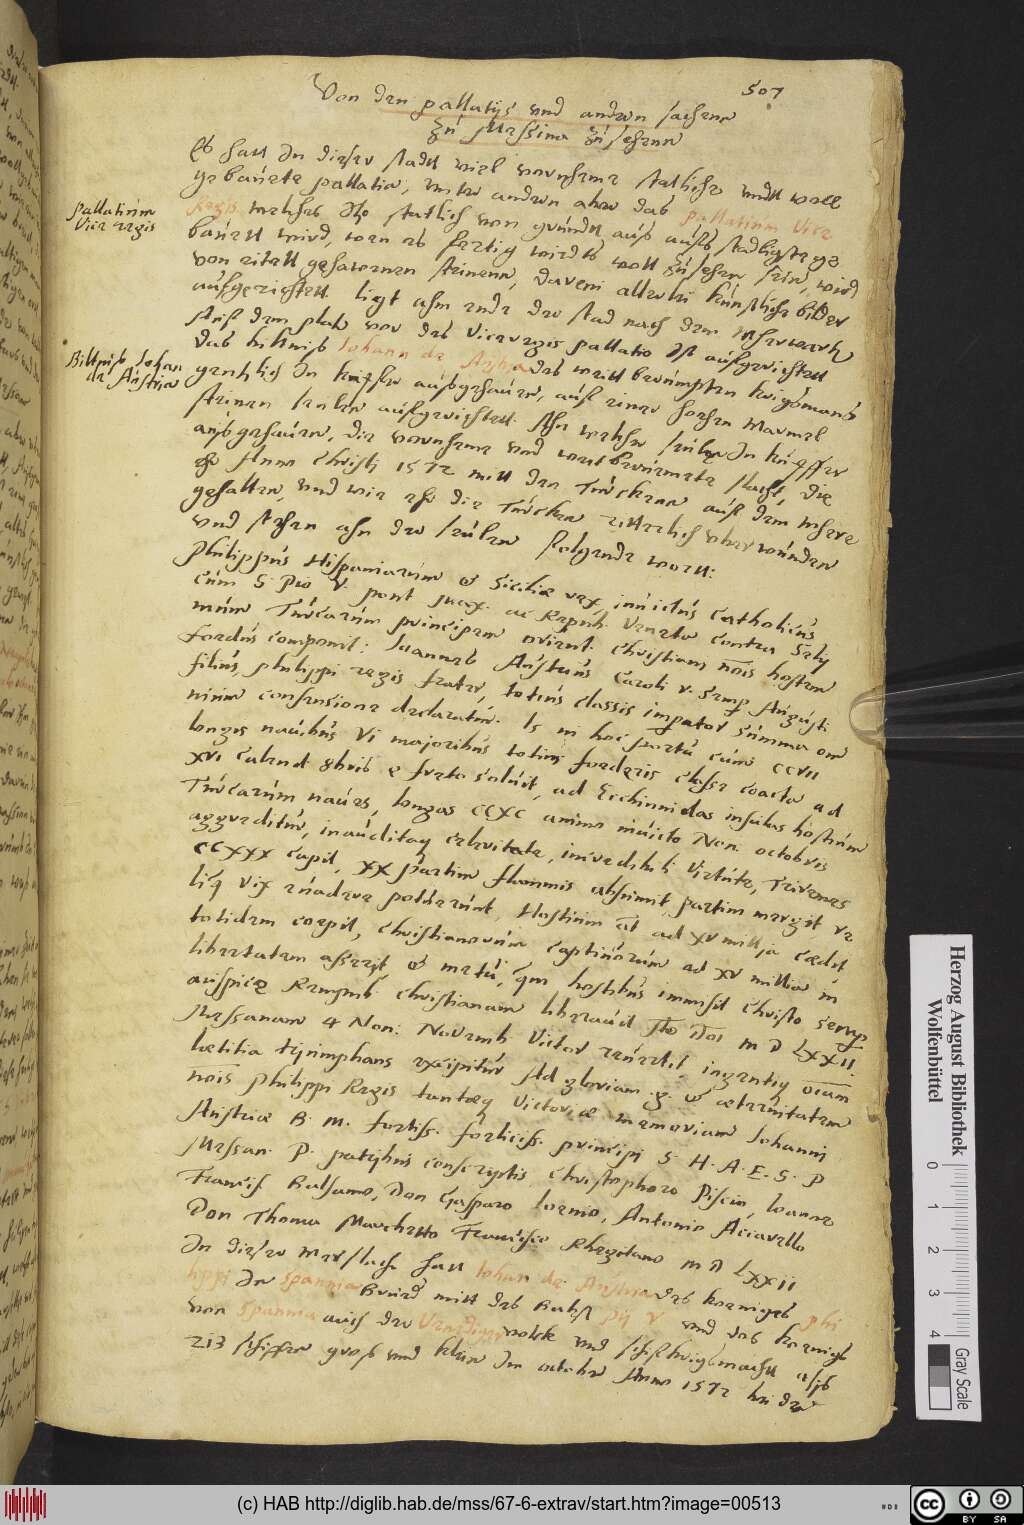 507
Von den pallatijs vnd andren sachenn
zu Messina zu sehenn
Es hatt In dieser stadt viel vornheme statliche vndt woll
gebauete pallatia, vnter andren aber das pallatium Vice
Regis welches Itzo statlich von grundt auß auffs stadligste ge
bauett wird, wen es fertig wirdts woll zu sehen sein, wird
von eitell gehawenen steinenn, daveni allerlei künstliche bilder
auffgerichtett ligt ahm ende der stad nach dem
auff dem platz vor des Viceregis pallatio Ist auffgerichtett
das biltniß Johann de Austria des weitt berümpten krigsmans
gentzlich In kupffer außgehauen, auff einer hochen Marmel
steinen seulen auffgerichtett. Ahn welcher seulen In kupffer
außgehauen, die vornheme vnd weitberumete slacht, die
ehr Anno Christi 1572 mitt den Türckenn auff dem Mehre
gehalten, vnd wie ehr die Türcken ritterlich vberwunden
vnd stehen ahn der seulen folgende wortt:
Philippus Hispaniarum et Siciliæ rex, inuictus catholicus
cum S Pio V. pont max. ac Repub. Veneta contra Sely
mum Turcarum principem orient. Christiani nois hostem
foedus componit: Ioannes Austrius Caroli V. semp Augusti
filius, philippi regis frater, totius classis imperator summa om
nium consensione declaratur. Is in hoc portu cum CCVII
longis nauibus VI majoribus totius foederis classe coacta ad
XVI Calend 8bris e freto soluit, ad Ecchinnidas insulas hostium
Turcarum naues, longas CCXC animo inuicto Non. octobris
aggreditur, inauditaq celeritate, incredibili Virtute, Triremes
CCXXX capit, XX partim flammis absumit partim mergit re
liq Vix euadere potuerunt, Hostium at ad XV millia cædit
totidem coepit, Christianorum captiuorum ad XV millia in
libertatem asserit et metu, qm hostibus immisit Christo semp
auspice Rempub Christianam liberauit Ao Doi M D LXXII.
Messanam 4 Non: Novemb Victor reuertit, ingentiq oium
lætitia trjumphans excipitur Ad gloriam. g. et æternitatem
nois philippi Regis tantæq Victoriæ memoriam Iohanni
Austriæ B. M. fortiss. foeliciss. principi S. H. A. E. S. P
Messan. P. patribus conscriptis Christophoro Piscio, Ioanne
Francis Balsamo, Don Gasparo Ioenio, Antonio Acciarello
Don Thoma Marchetto Francisco Rhegitano M D LXXII
In dieser Meerslacht hatt Johan de Austria des koeniges Phi
lippi In Spannia Bruder mitt des Babst Pij V vnd des koenigs
von Spannia auch der Venediger volck vnd schiffkrigsmacht alß
213 schiffen groß vnd klein Im octobr Anno 1572 bei der
pallatium
Vice regis
Biltniß Johan
de Austria
Herzog August Bibliothek
Wolfenbüttel
0 1 2 3 4
Gray Scale
(c) HAB http://diglib.hab.de/mss/67-6-extrav/start.htm?image=00513
cc BY SA